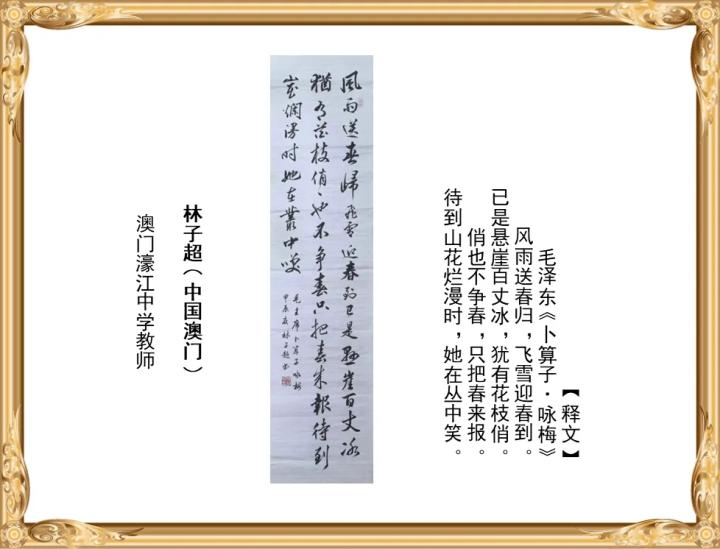 【释文】
毛泽东《卜算子·咏梅》
风雨送春归，飞雪迎春到。
已是悬崖百丈冰，犹有花枝俏。
俏也不争春，只把春来报。
待到山花烂漫时，她在丛中笑。
風雨送春歸飛雪迎春到已是懸崖百丈冰
猶有花枝俏〻也不争春只把春来報待到
山花爛漫时她在叢中咲
毛主席卜算子咏梅
甲辰夏林子超书
林子超（中国澳门）
澳门濠江中学教师